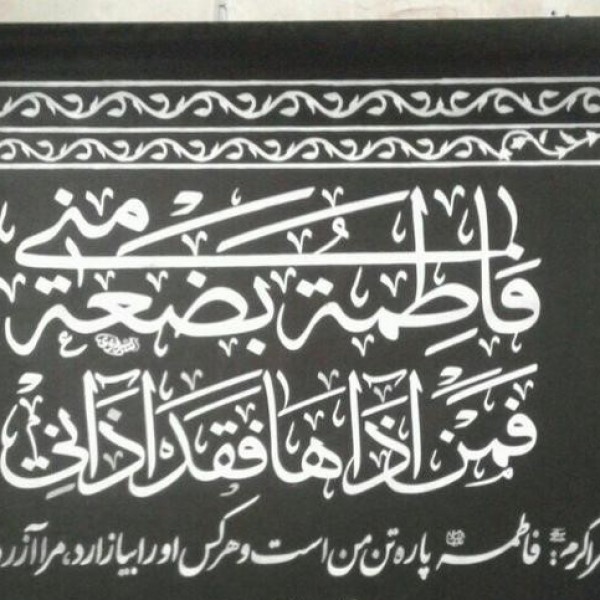 فاطمة بضعة مني
فمن اذاها فقد اذاني
فاطمه پاره تن من است و هر کس او را بیازارد، مرا آزرد